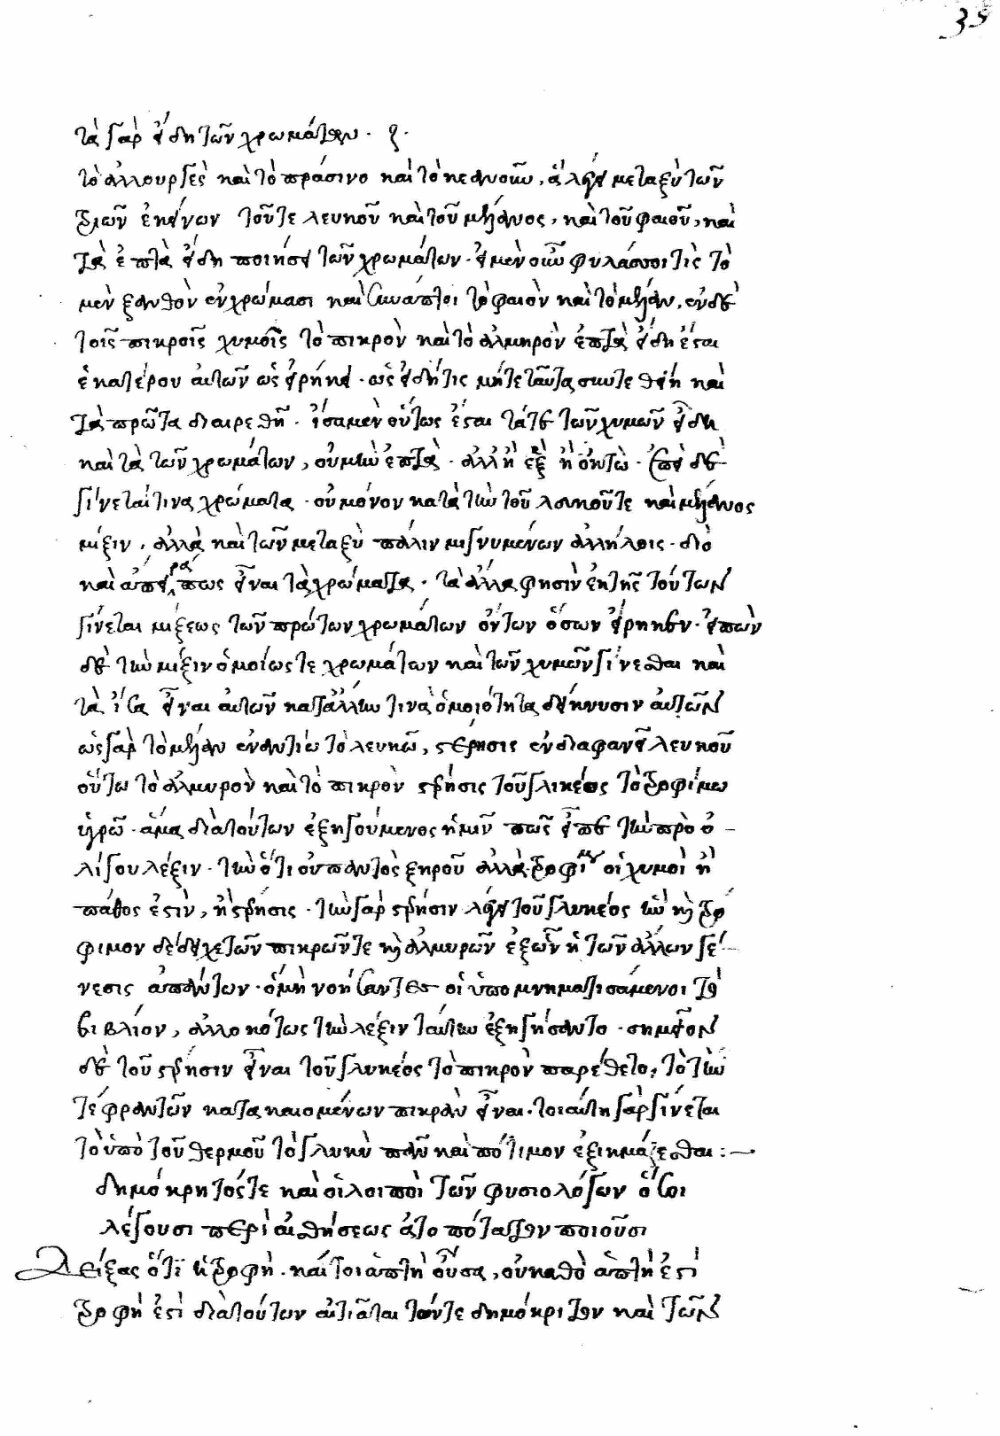 35
τὰ γὰρ εἴδη τῶν χρωμάτων · ζ ·
τὸ ἁλουργὲς καὶ τὸ πράσινο καὶ τὸ κυανοῦν, ἃ λέγει μεταξὺ τῶν
τριῶν ἐκείνων τοῦ τε λευκοῦ καὶ τοῦ μέλανος, καὶ τοῦ φαιοῦ, καὶ
τὰ ἑπτὰ εἴδη ποιήσει τῶν χρωμάτων · εἰ μὲν οὖν φυλάσσοι τις τὸ
μὲν ξανθὸν ἐν χρώμασι καὶ συνάπτοι τὸ φαιὸν καὶ τὸ μέλαν, ἐν δὲ
τοῖς πικροῖς χυμοῖς τὸ πικρὸν καὶ τὸ ἁλμυρὸν ἑπτὰ εἴδη ἔσται
ἑκατέρου αὐτῶν ὡς εἴρηκε · ὡς εἰ δή τις μήτε ταῦτα συντεθείη καὶ
τὰ πρῶτα διαιρεθῆ · ἴσα μὲν οὕτως ἔσται τά τε τῶν χυμῶν εἴδη
καὶ τὰ τῶν χρωμάτων, οὐ μὴν ἑπτὰ · ἀλλ' ἢ ἓξ ἢ ὀκτὼ · ἐπεὶ δὲ
γίνεταί τινα χρώματα · οὐ μόνον κατὰ τὴν τοῦ λευκοῦ τε καὶ μέλανος
μίξιν, ἀλλὰ καὶ τῶν μεταξὺ πάλιν μιγνυμένων ἀλλήλοις · διὸ
καὶ ἄπειρά πως εἶναι τὰ χρώματα · τὰ ἄλλα φησὶν ἐκ τῆς τούτων
γίνεται μίξεως τῶν πρώτων χρωμάτων ὄντων ὅσων εἴρηκεν · εἰπὼν
δὲ τὴν μίξιν ὁμοίως τε χρωμάτων καὶ τῶν χυμῶν γίνεσθαι καὶ
τὰ ἴσα εἶναι αὐτῶν κατ' ἄλλην τινὰ ὁμοιότητα δείκνυσιν αὐτῶν
ὡς γὰρ τὸ μέλαν ἐναντίον τὸ λευκῶ, στέρησις ἐν διαφανεῖ λευκοῦ
οὕτω τὸ ἁλμυρὸν καὶ τὸ πικρὸν στέρησις τοῦ γλυκέος τὸ τροφίμω
ὑγρῶ · ἅμα διὰ τούτων ἐξηγούμενος ἡμῖν πῶς εἶπε τὴν πρὸ ὀ-
λίγου λέξιν · τὴν ὅτι οὐ παντὸς ξηροῦ ἀλλὰ τροφίμου οἱ χυμοὶ ἢ
πάθος ἐστὶν, ἢ στέρησις · τὴν γὰρ στέρησιν λέγει τοῦ γλυκέος τὸ κατὰ τρό
φιμον δέδειχε τῶν πικρῶν τε καὶ ἁλμυρῶν ἐξ ὧν ἡ τῶν ἄλλων γέ-
νεσις ἁπάντων · ὃ μὴ νοήσαντες οἱ ὑπομνηματισάμενοι τὸ
βιβλίον, ἀλλοκότως τὴν λέξιν ταύτην ἐξηγήσαντο · σημεῖον
δὲ τοῦ στέρησιν εἶναι τοῦ γλυκέος τὸ πικρὸν παρέθετο, τὸ τὴν
τέφραν τῶν κατακαιομένων πικρὰν εἶναι · τοιαύτη γὰρ γίνεται
τὸ ὑπὸ τοῦ θερμοῦ τὸ γλυκὺ πᾶν καὶ πότιμον ἐξικμάζεσθαι : —
δημόκριτός τε καὶ οἱ λοιποὶ τῶν φυσιολόγων ὅσοι
λέγουσι περὶ αἰσθήσεως ἄτοπόν τι ποιοῦσι
Δείξας ὅτι ἡ τροφὴ · καίτοι ἁπτὴ οὖσα, οὐ καθὸ ἁπτὴ ἐστὶ
τροφὴ ἐστὶ διὰ τούτων αἰτιᾶται τόν τε δημόκριτον καὶ τῶν